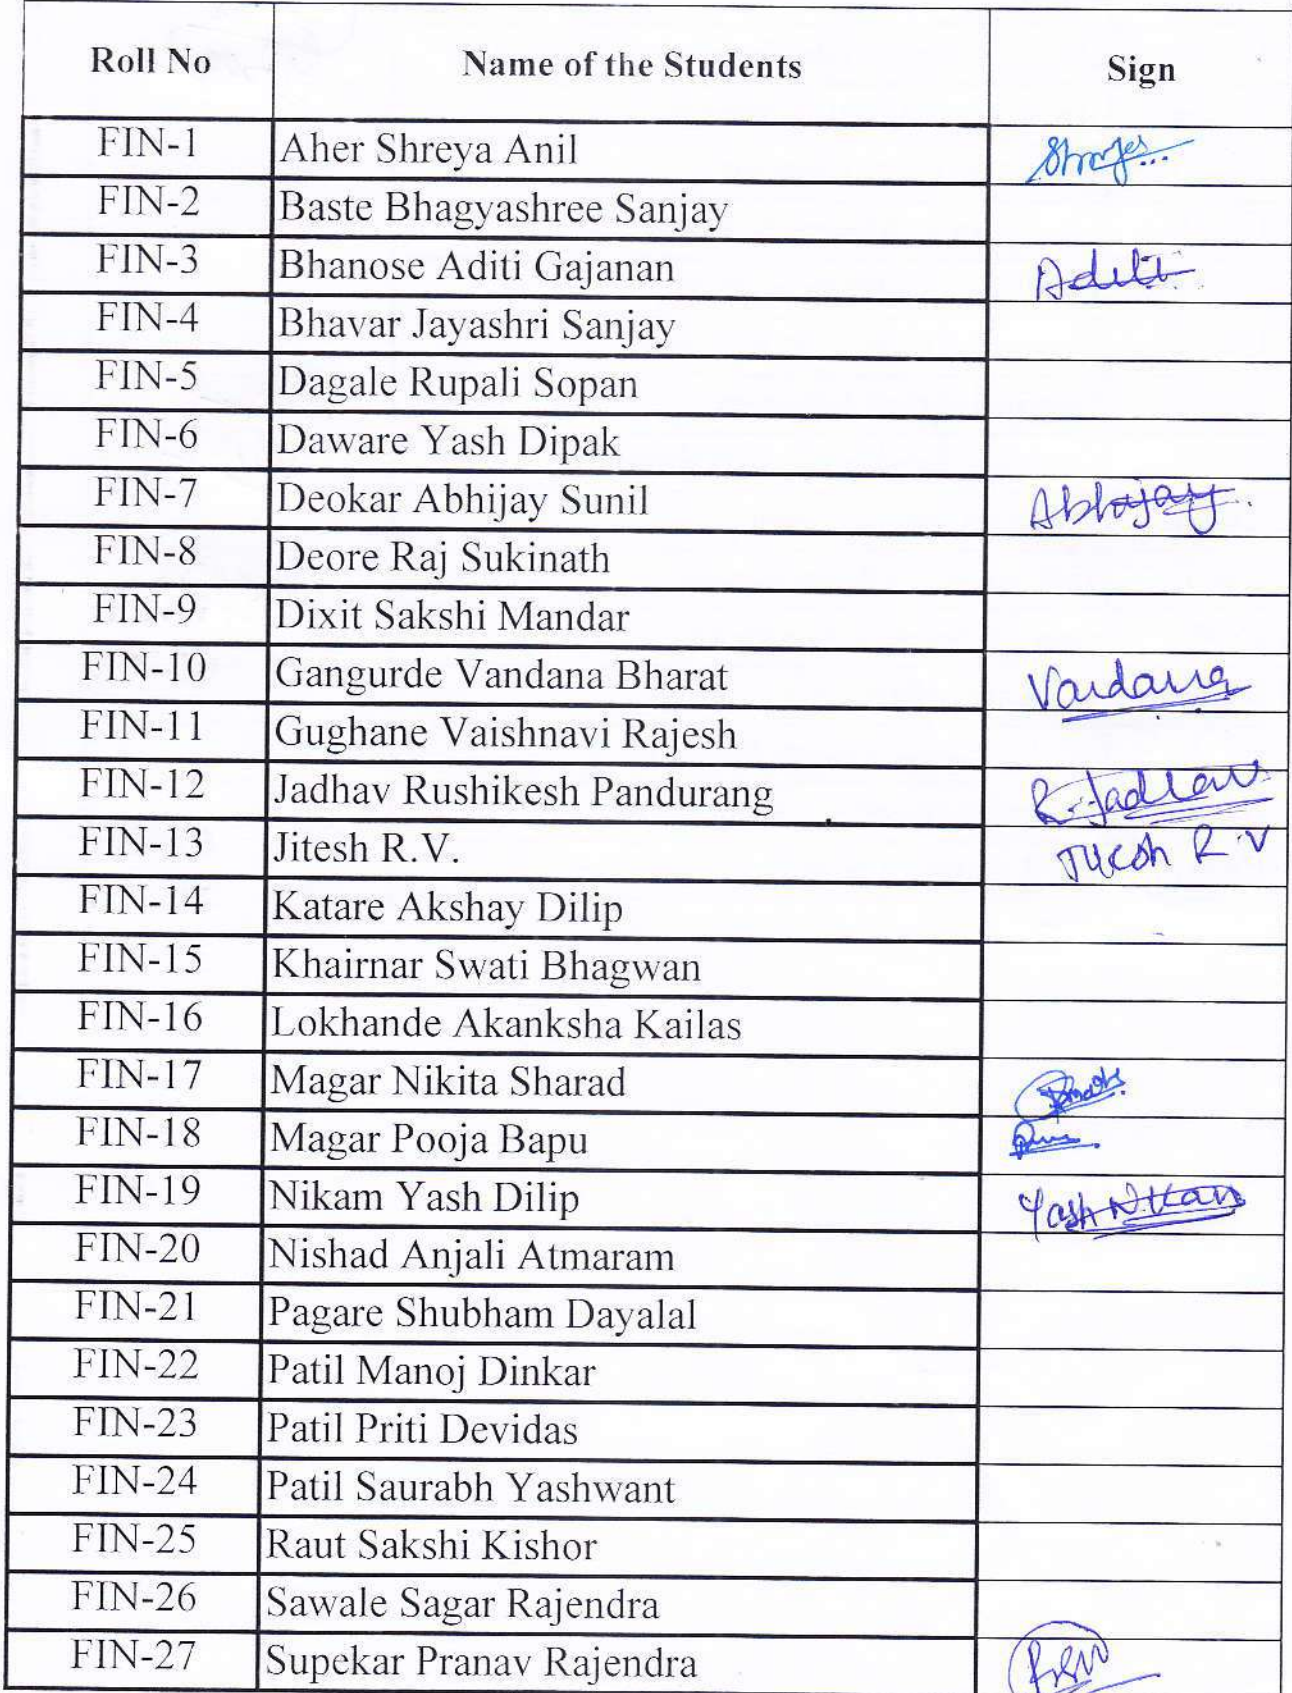 Roll No Name of the Students Sign
FIN-1 Aher Shreya Anil
FIN-2 Baste Bhagyashree Sanjay
FIN-3 Bhanose Aditi Gajanan Aditi
FIN-4 Bhavar Jayashri Sanjay
FIN-5 Dagale Rupali Sopan
FIN-6 Daware Yash Dipak
FIN-7 Deokar Abhijay Sunil Abhijay
FIN-8 Deore Raj Sukinath
FIN-9 Dixit Sakshi Mandar
FIN-10 Gangurde Vandana Bharat Vandana
FIN-11 Gughane Vaishnavi Rajesh
FIN-12 Jadhav Rushikesh Pandurang R. Jadhav
FIN-13 Jitesh R.V. Jitesh R.V
FIN-14 Katare Akshay Dilip
FIN-15 Khairnar Swati Bhagwan
FIN-16 Lokhande Akanksha Kailas
FIN-17 Magar Nikita Sharad
FIN-18 Magar Pooja Bapu
FIN-19 Nikam Yash Dilip Yash Nikam
FIN-20 Nishad Anjali Atmaram
FIN-21 Pagare Shubham Dayalal
FIN-22 Patil Manoj Dinkar
FIN-23 Patil Priti Devidas
FIN-24 Patil Saurabh Yashwant
FIN-25 Raut Sakshi Kishor
FIN-26 Sawale Sagar Rajendra
FIN-27 Supekar Pranav Rajendra